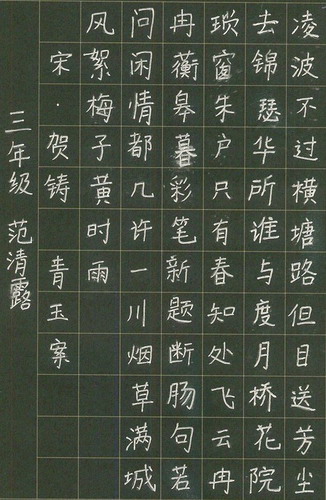 凌波不过横塘路但目送芳尘
去锦瑟华所谁与度月桥花院
琐窗朱户只有春知处飞云冉
冉蘅皋暮彩笔新题断肠句若
问闲情都几许一川烟草满城
风絮梅子黄时雨
宋·贺铸 青玉案
三年级 范清露